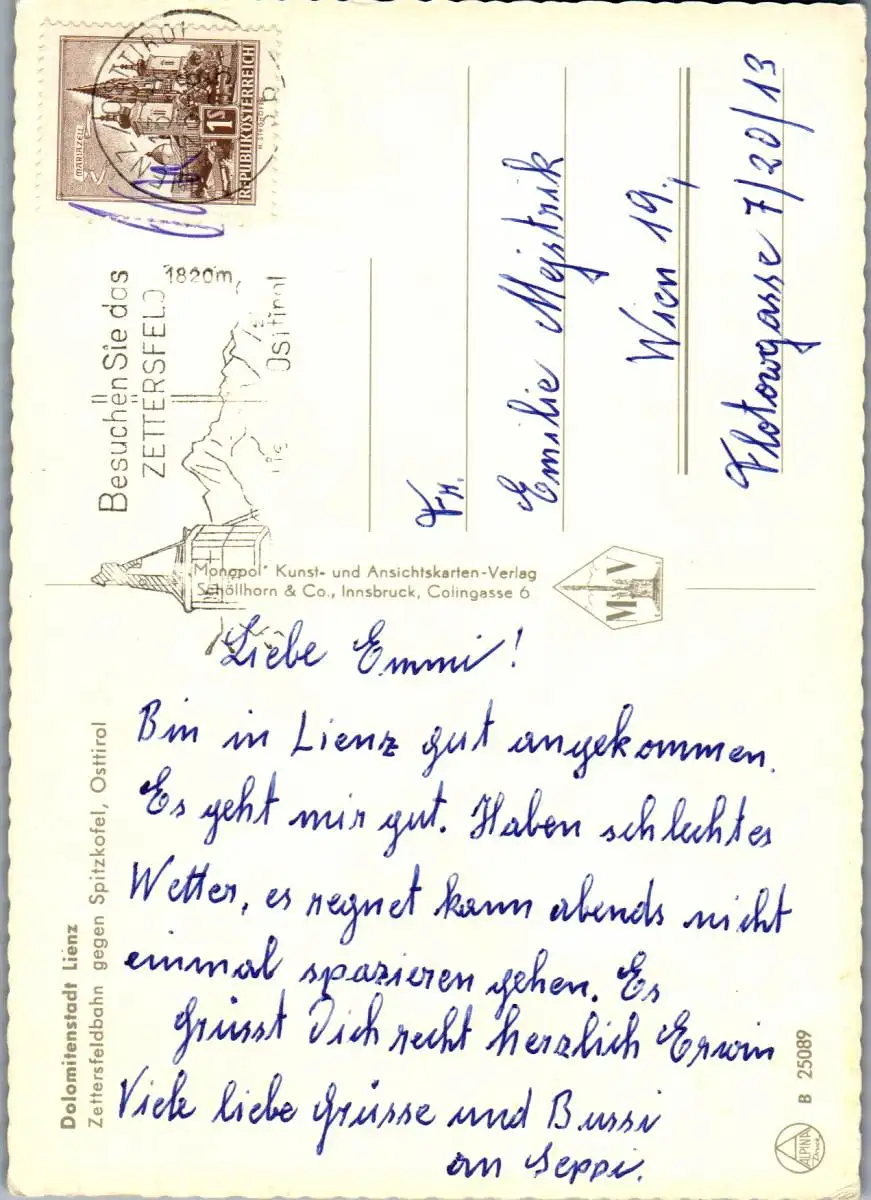 MARIAZELL
1S
REPUBLIK ÖSTERREICH
Besuchen Sie das
ZETTERSFELD
1820m
Osttirol
Fr.
Emilie Mejstrik
Wien 19.,
Flotowgasse 7/20/13
"Monopol" Kunst- und Ansichtskarten-Verlag
Schöllhorn & Co., Innsbruck, Colingasse 6
MV
Liebe Emmi!
Bin in Lienz gut angekommen.
Es geht mir gut. Haben schlechtes
Wetter, es regnet kann abends nicht
einmal spazieren gehen. Es
grüsst Dich recht herzlich Erwin
Viele liebe Grüsse und Bussi
an Seppi.
Dolomitenstadt Lienz
Zettersfeldbahn gegen Spitzkofel, Osttirol
B 25089
ALPINA
Druck